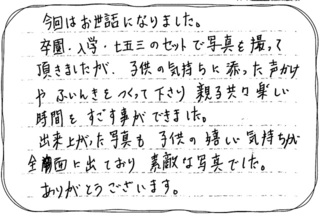 今回はお世話になりました。
卒園・入学・七五三のセットで写真を撮って
頂きましたが、子供の気持ちに添った声かけ
や ふいんきをつくって下さり 親子共々楽しい
時間をすごす事ができました。
出来上がった写真も 子供の嬉しい気持ちが
全面に出ており 素敵な写真でした。
ありがとうございます。